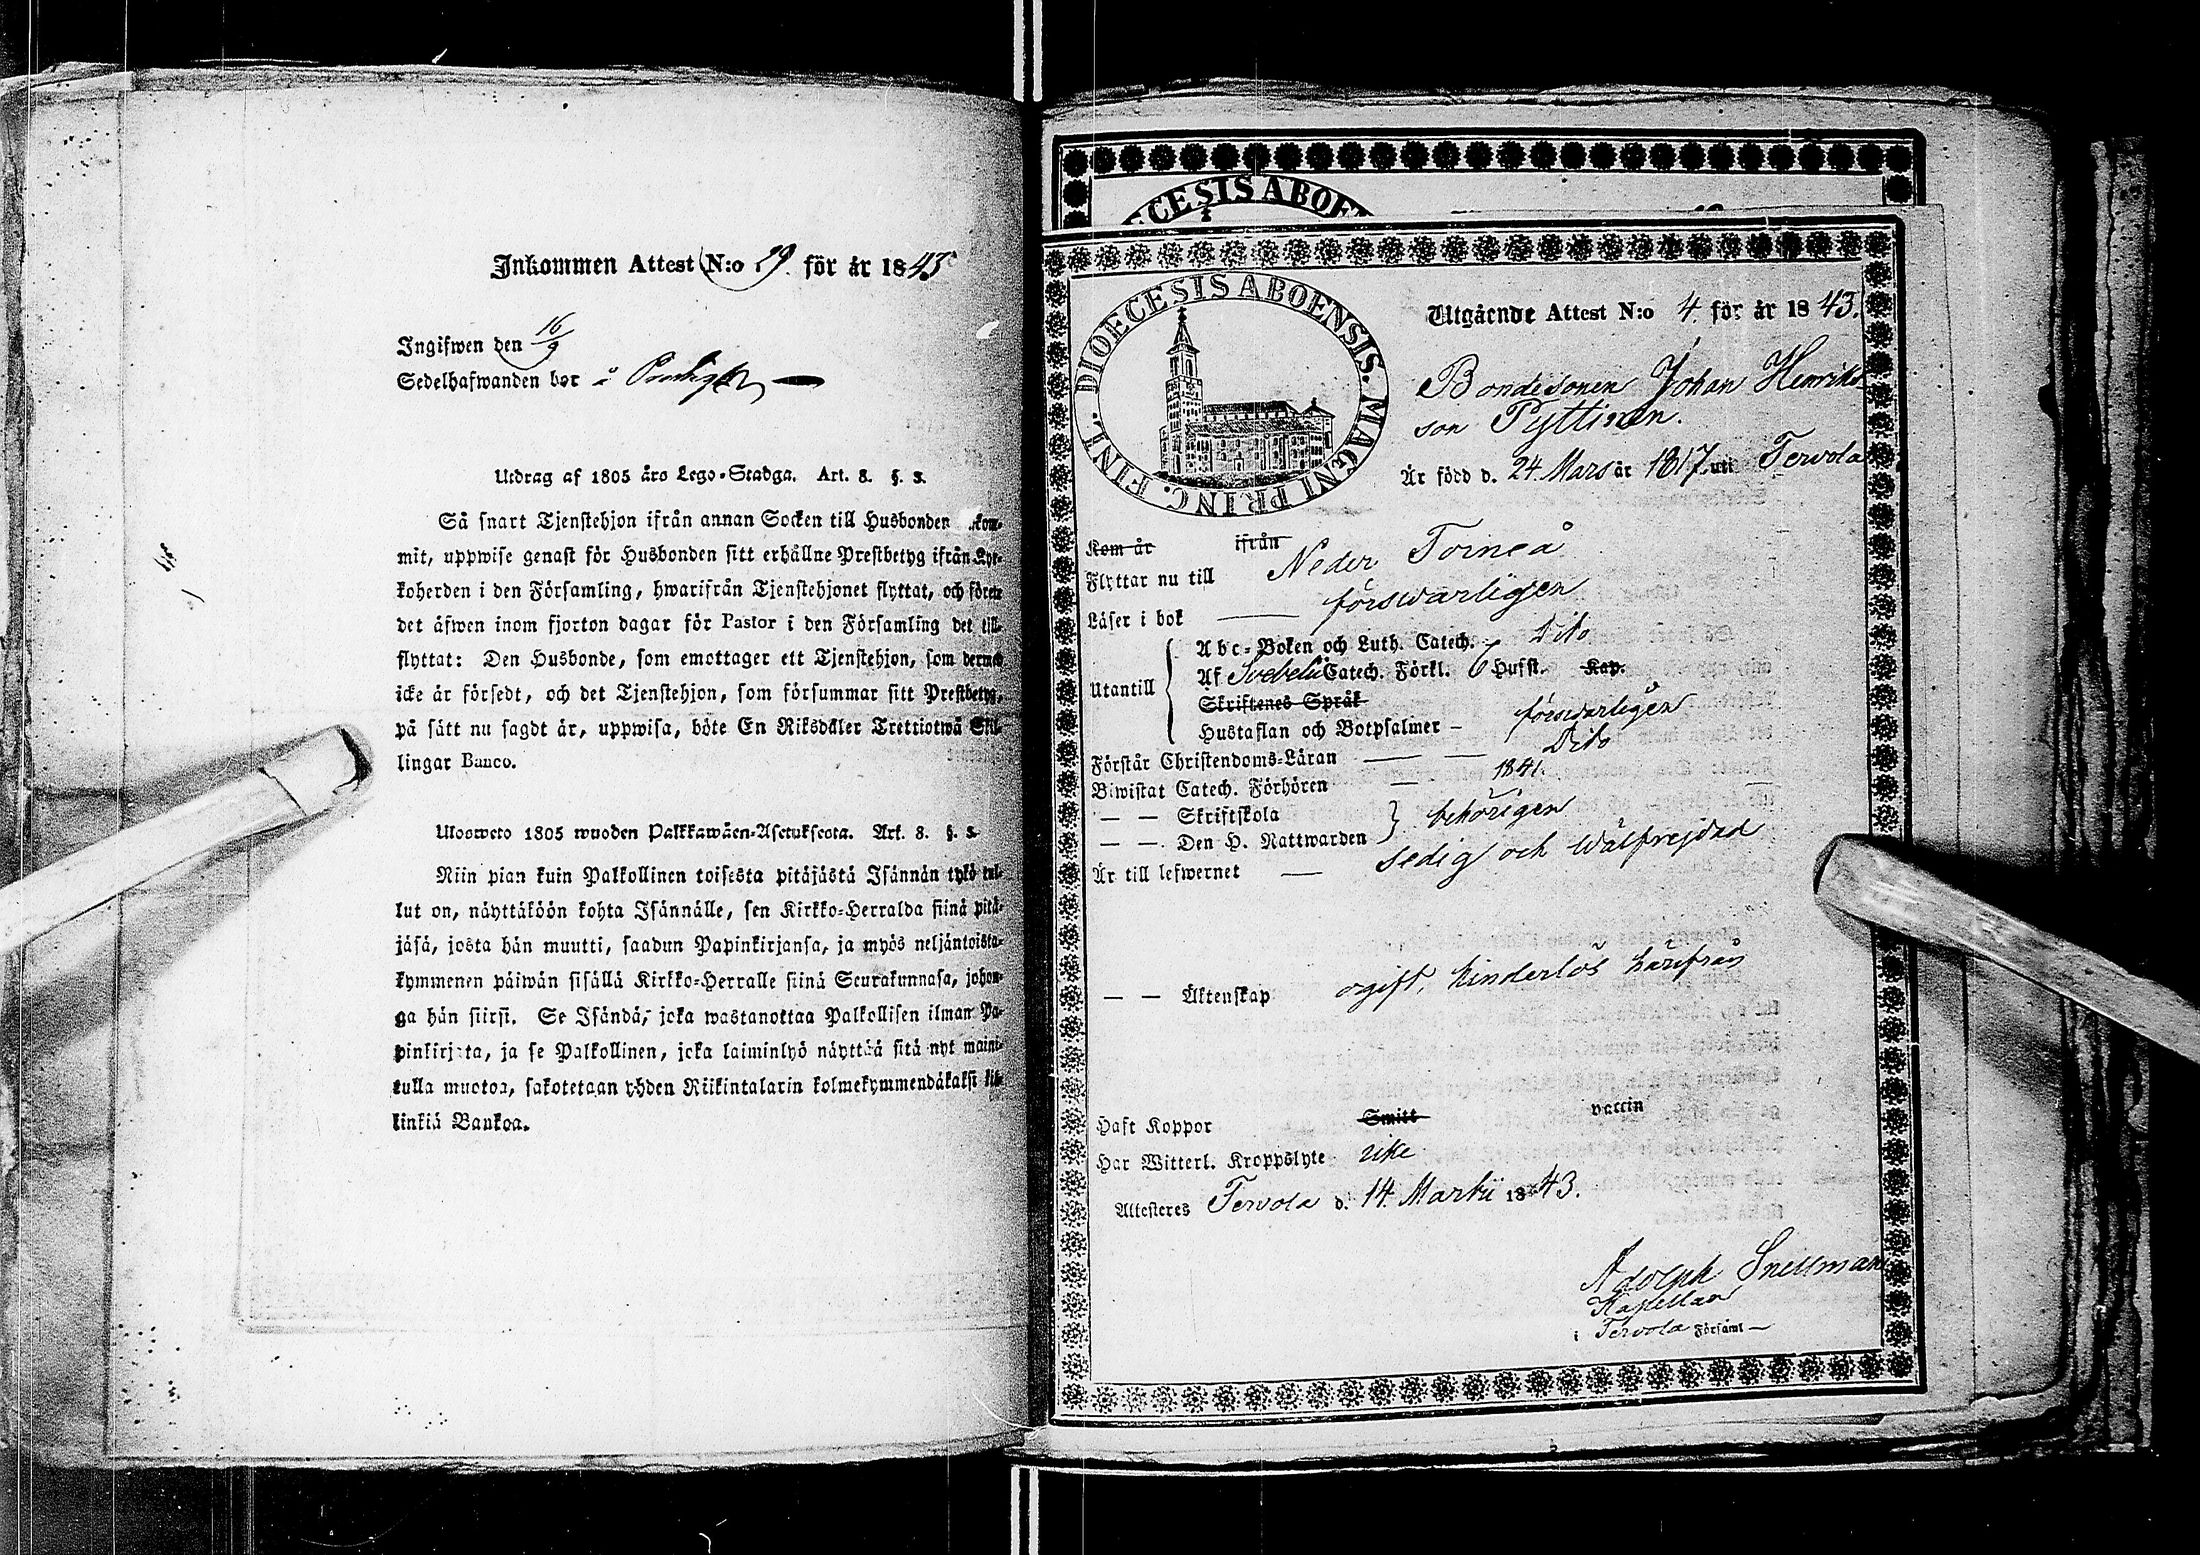 Inkommen Attest N:o 29. för år 1843
Ingifwen den 16/9
Sedelhafwanden bor å
Utdrag af 1805 års Lego-Stadga. Art. 8. §. 5.
Så snart Tjenstehjon ifrån annan Socken till Husbonden
mit, uppwise genast för Husbonden sitt erhållne Prestbetyg ifrån Kyr-
koherden i den Församling, hwarifrån Tjenstehjonet flyttat, och förete
det äfwen inom fjorton dagar för Pastor i den Församling det till-
flyttat: Den Husbonde, som emottager ett Tjenstehjon, som dermed
icke är försedt, och det Tjenstehjon, som försummar sitt Prestbetyg,
på sätt nu sagdt är, uppwisa, böte En Riksdaler Trettiotwå Skil-
lingar Banco.
Ulosweto 1805 wuoden Palkkawäen-Asetuksesta. Art. 8. §. 5.
Niin pian kuin Palkollinen toisesta pitäjästä Isännän tykö tul-
lut on, näyttäköön kohta Isännälle, sen Kirkko-Herralda siinä pitä-
jäsä, josta hän muutti, saadun Papinkirjansa, ja myös neljäntoista-
kymmenen päiwän sisällä Kirkko-Herralle siinä Seurakunnasa, johon-
ga hän siirsi. Se Isändä, joka wastanottaa Palkollisen ilman Pa-
pinkirjata, ja se Palkollinen, joka laiminlyö näyttää sitä nyt maini-
tulla muotoa, sakotetaan yhden Riikintalarin kolmekymmendäkaksi kil-
linkiä Bankoa.
DIOECESIS ABOENSIS. MAGNI PRINC. FINL.
Utgående Attest N:o 4. för år 1843.
Bondesonen Johan Henriks-
son Pyttinen.
Är född d. 24 Mars år 1817. uti Tervola
Kom år ifrån
Flyttar nu till Neder Torneå
Läser i bok — försvarligen
Utantill
Abc-Boken och Luth. Catech. Dito
Af Svebelii Catech. Förkl. 6 Hufst. Kap.
Skriftenes Språk
Hustaflan och Botpsalmer – försvarligen
Förstår Christendoms-Läran — — Dito
Biwistat Catech. Förhören — 1841.
— — Skriftskola
— — Den H. Nattwarden } behörigen
Är till lefwernet — sedig och wälfrejdad
— — Äktenskap ogift, hinderlös härifrån
Haft Koppor Smitt vaccin
Har Witterl. Kroppslyte icke
Attesteres Tervola d. 14. Martii 1843.
Adolph Snellman
Kapellan
i Tervola Församl —